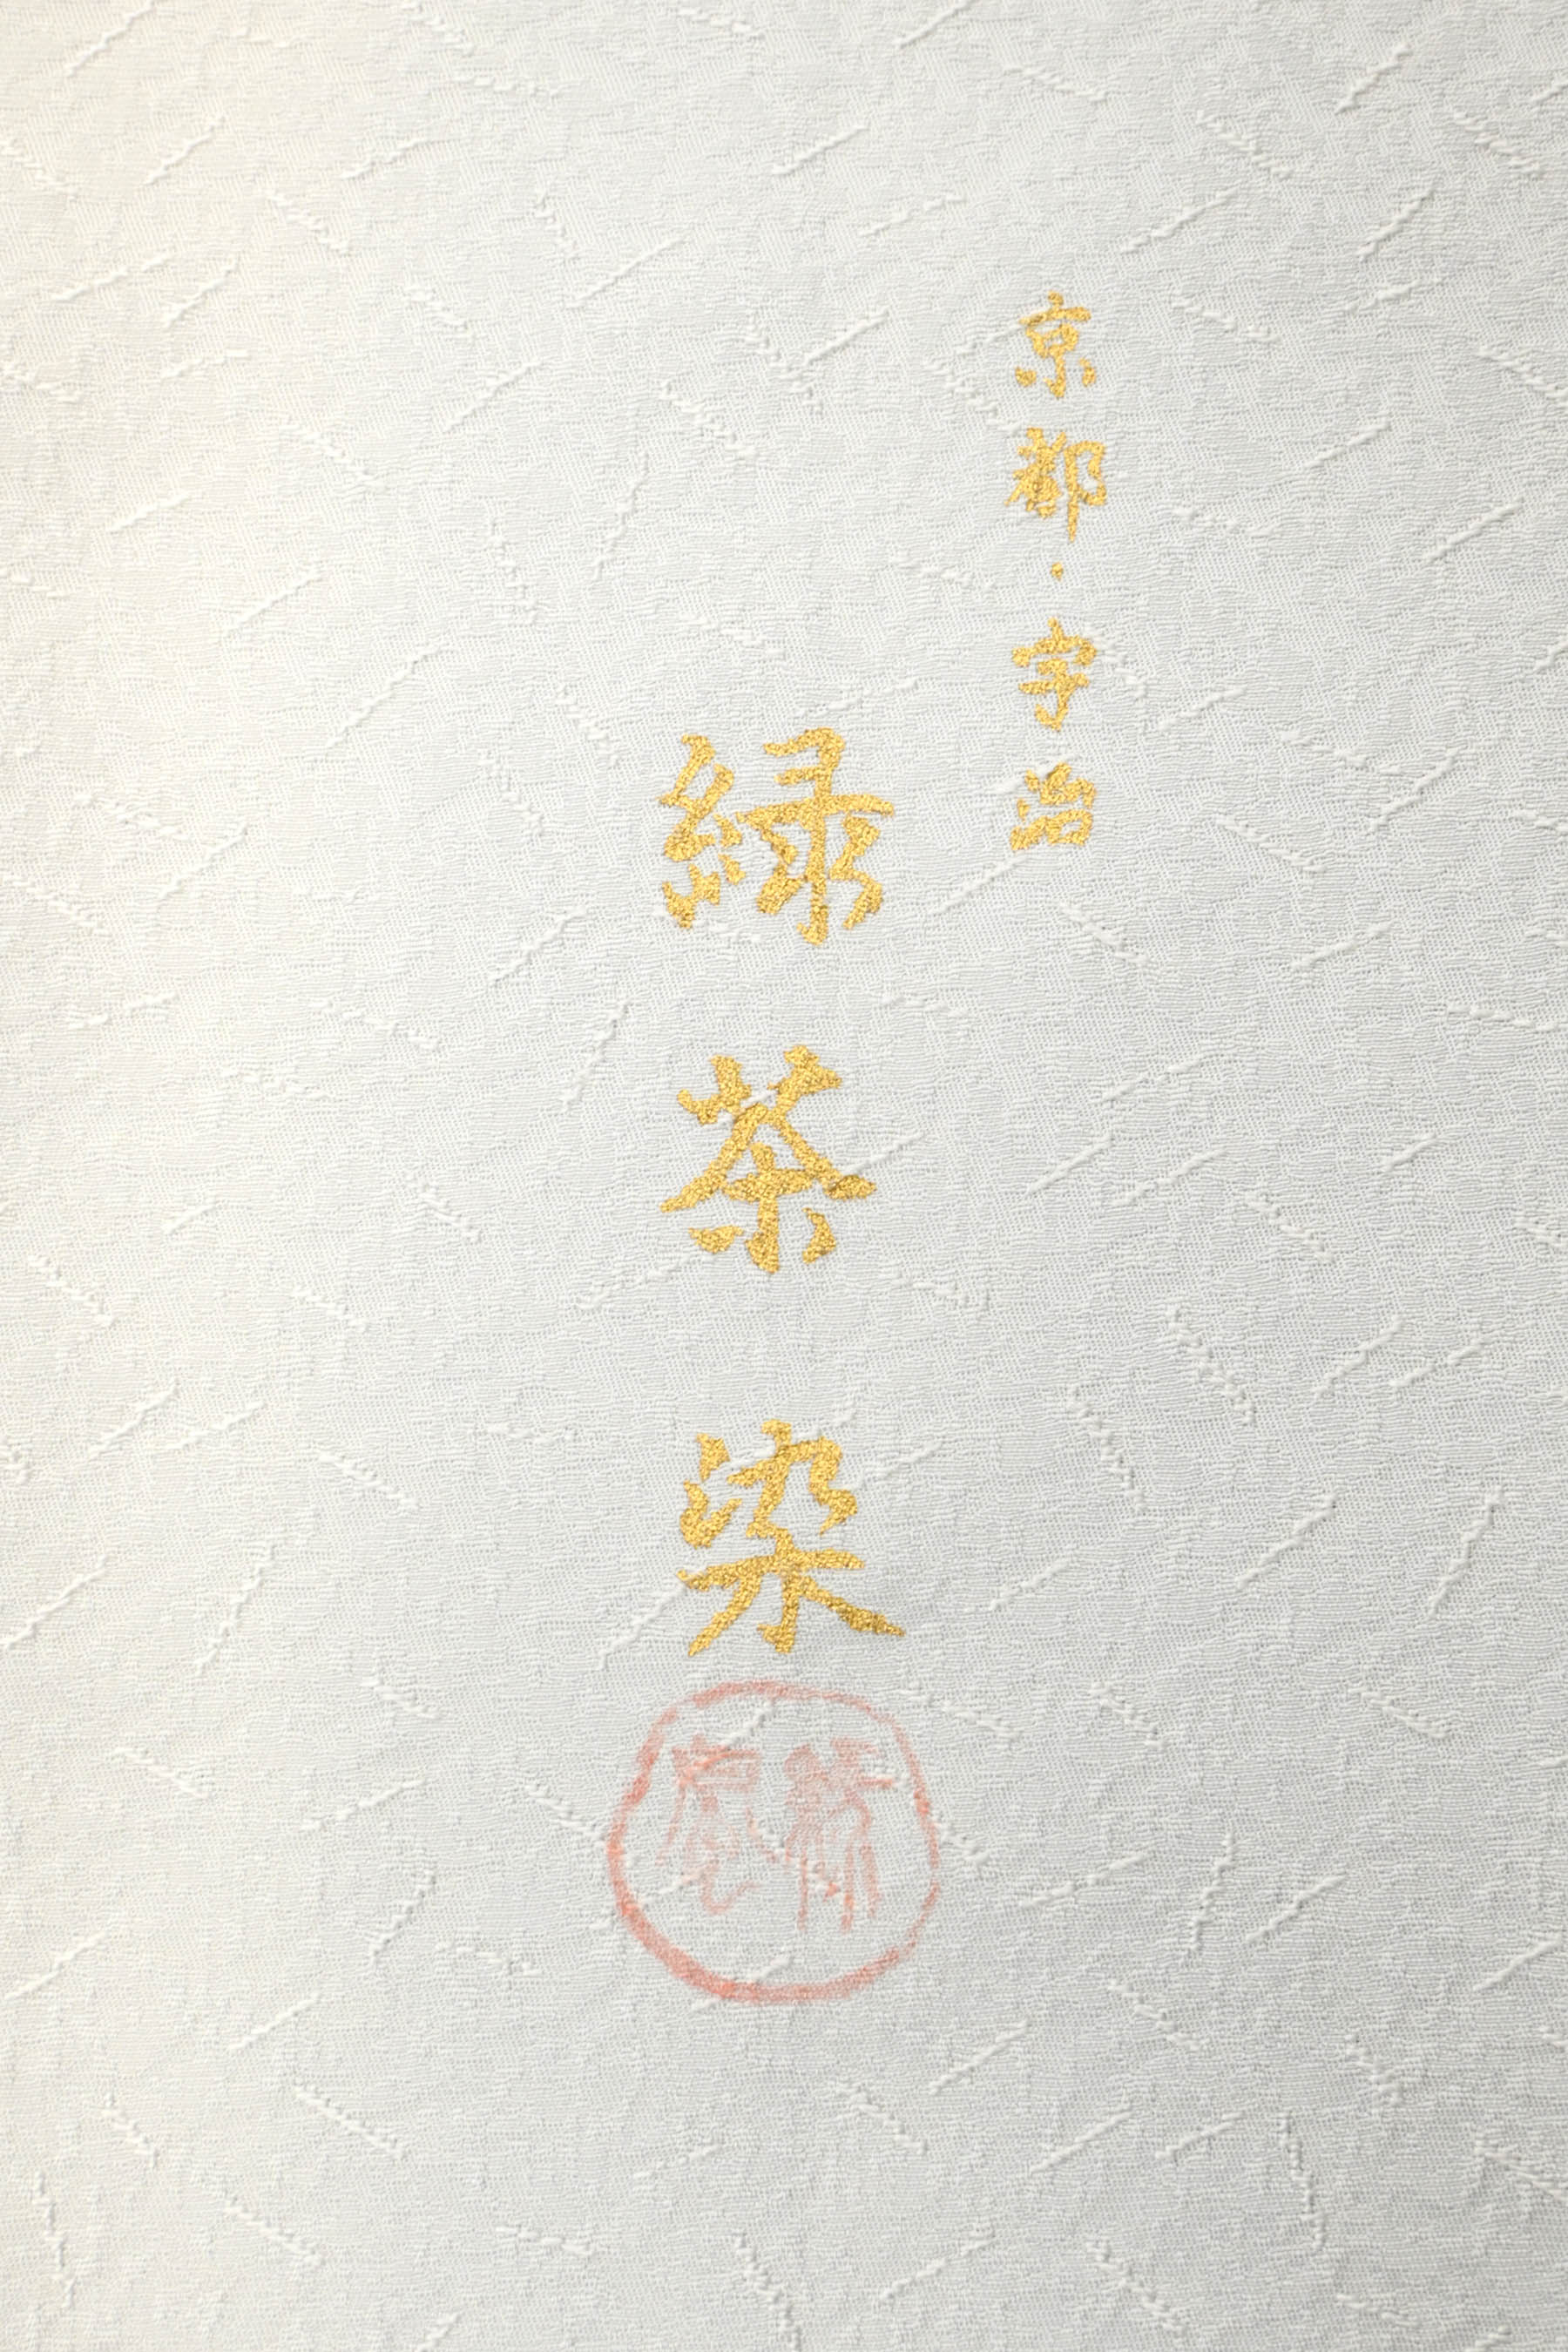 京都・宇治
緑茶染